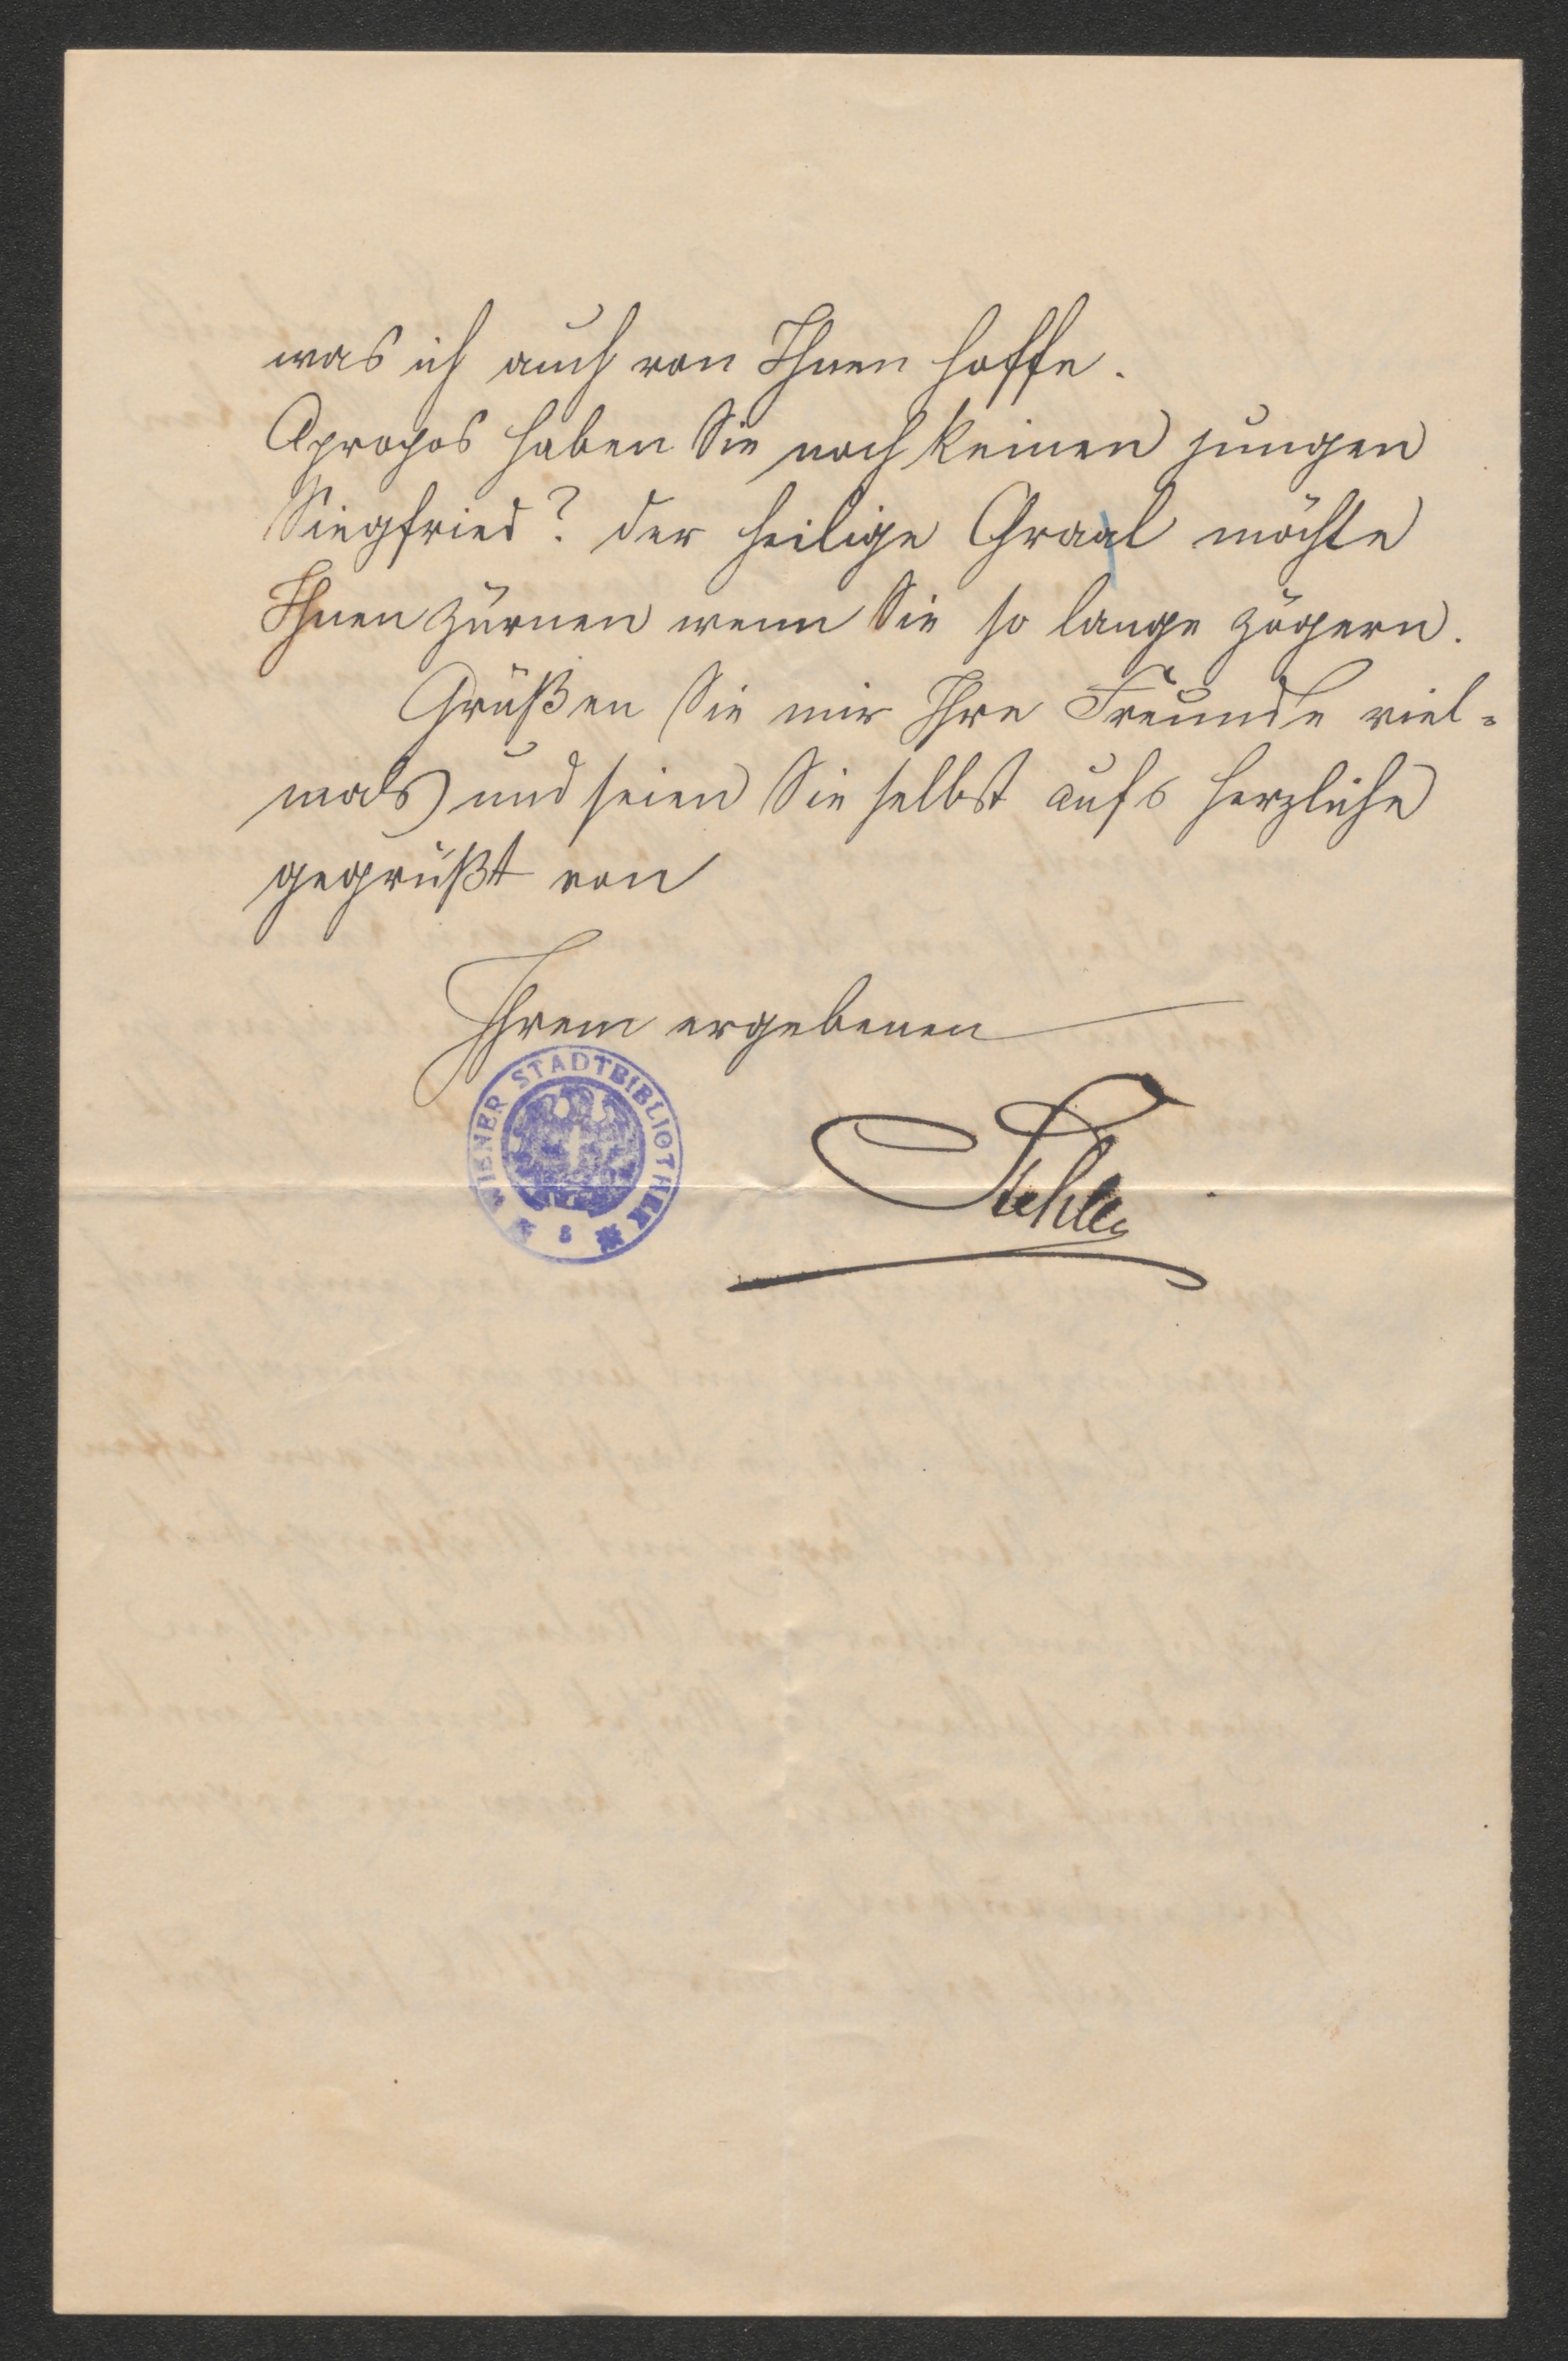 was ich auch von Ihnen hoffe.
Apropos haben Sie noch keinen jungen
Siegfried? der heilige Graal möchte
Ihnen zürnen wenn Sie so lange zögern.
Grüßen Sie mir Ihre Freunde viel=
mals und seien Sie selbst aufs herzliche
gegrüßt von
Ihrem ergebenen
WIENER STADTBIBLIOTHEK